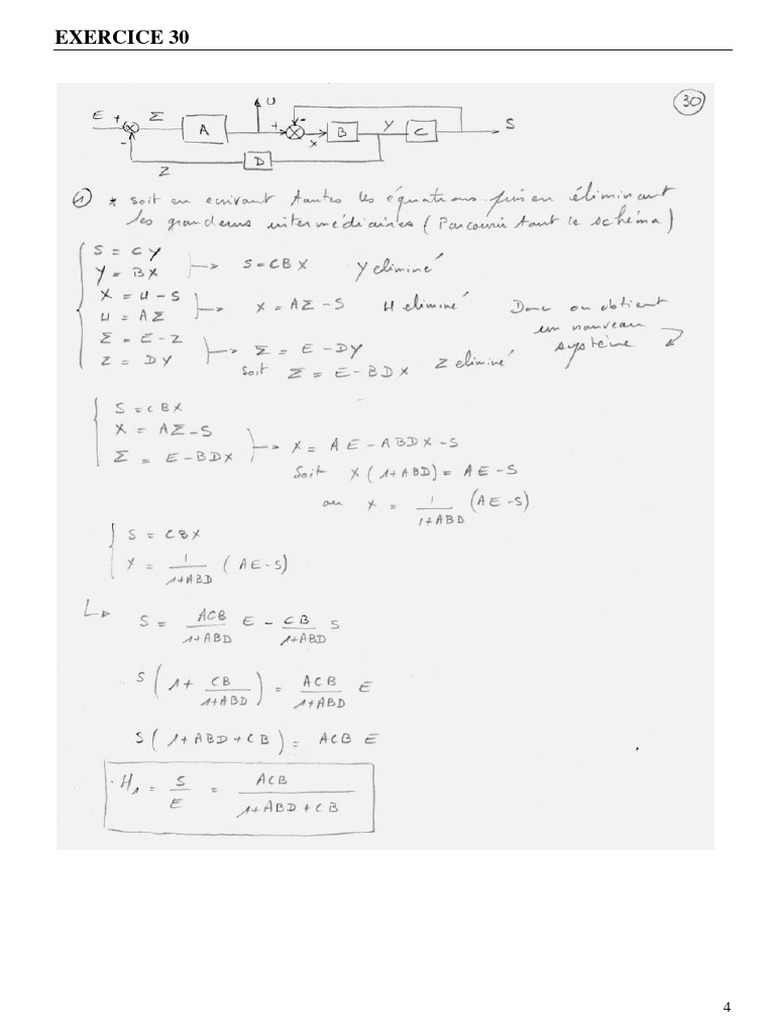 EXERCICE 30
30
E + Σ A U + - X B Y C S
- Z D
1) * soit en ecrivant toutes les équations puis en éliminant
les grandeurs intermédiaires (Parcourir tout le schéma)
S = CY
Y = BX
→ S = CBX Y eliminé
X = U - S
U = AΣ
→ X = AΣ - S U eliminé
Donc on obtient
un nouveau
système
Σ = E - Z
Z = DY
→ Σ = E - DY
Soit Σ = E - BDX Z eliminé
S = CBX
X = AΣ - S
Σ = E - BDX
→ X = AE - ABDX - S
Soit X(1+ABD) = AE - S
ou X = 1/(1+ABD) (AE - S)
S = CBX
X = 1/(1+ABD) (AE - S)
L→ S = ACB/(1+ABD) E - CB/(1+ABD) S
S(1 + CB/(1+ABD)) = ACB/(1+ABD) E
S(1+ABD+CB) = ACB E
H1 = S/E = ACB/(1+ABD+CB)
4